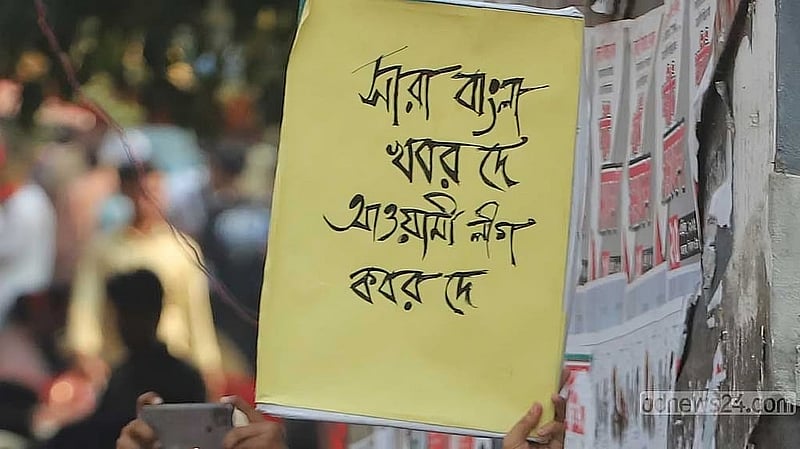 সারা বাংলা
খবর দে
আওয়ামী লীগ
কবর দে
ocnews24.com